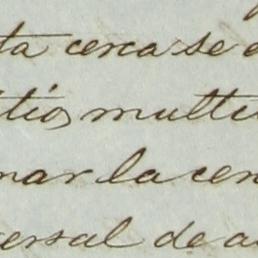 ta cerca se e
itio, multi
mar la cen
ersal de a